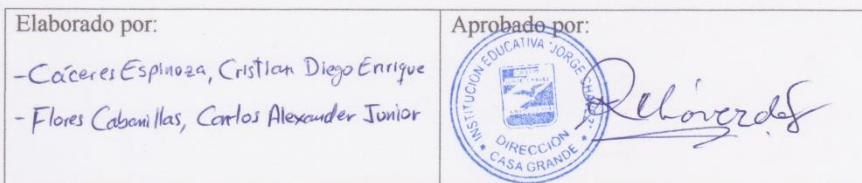 Elaborado por:
- Cáceres Espinoza, Cristian Diego Enrique
- Flores Cabanillas, Carlos Alexander Junior
Aprobado por:
INSTITUCION EDUCATIVA "JORGE CHAVEZ"
DIRECCIÓN
CASA GRANDE